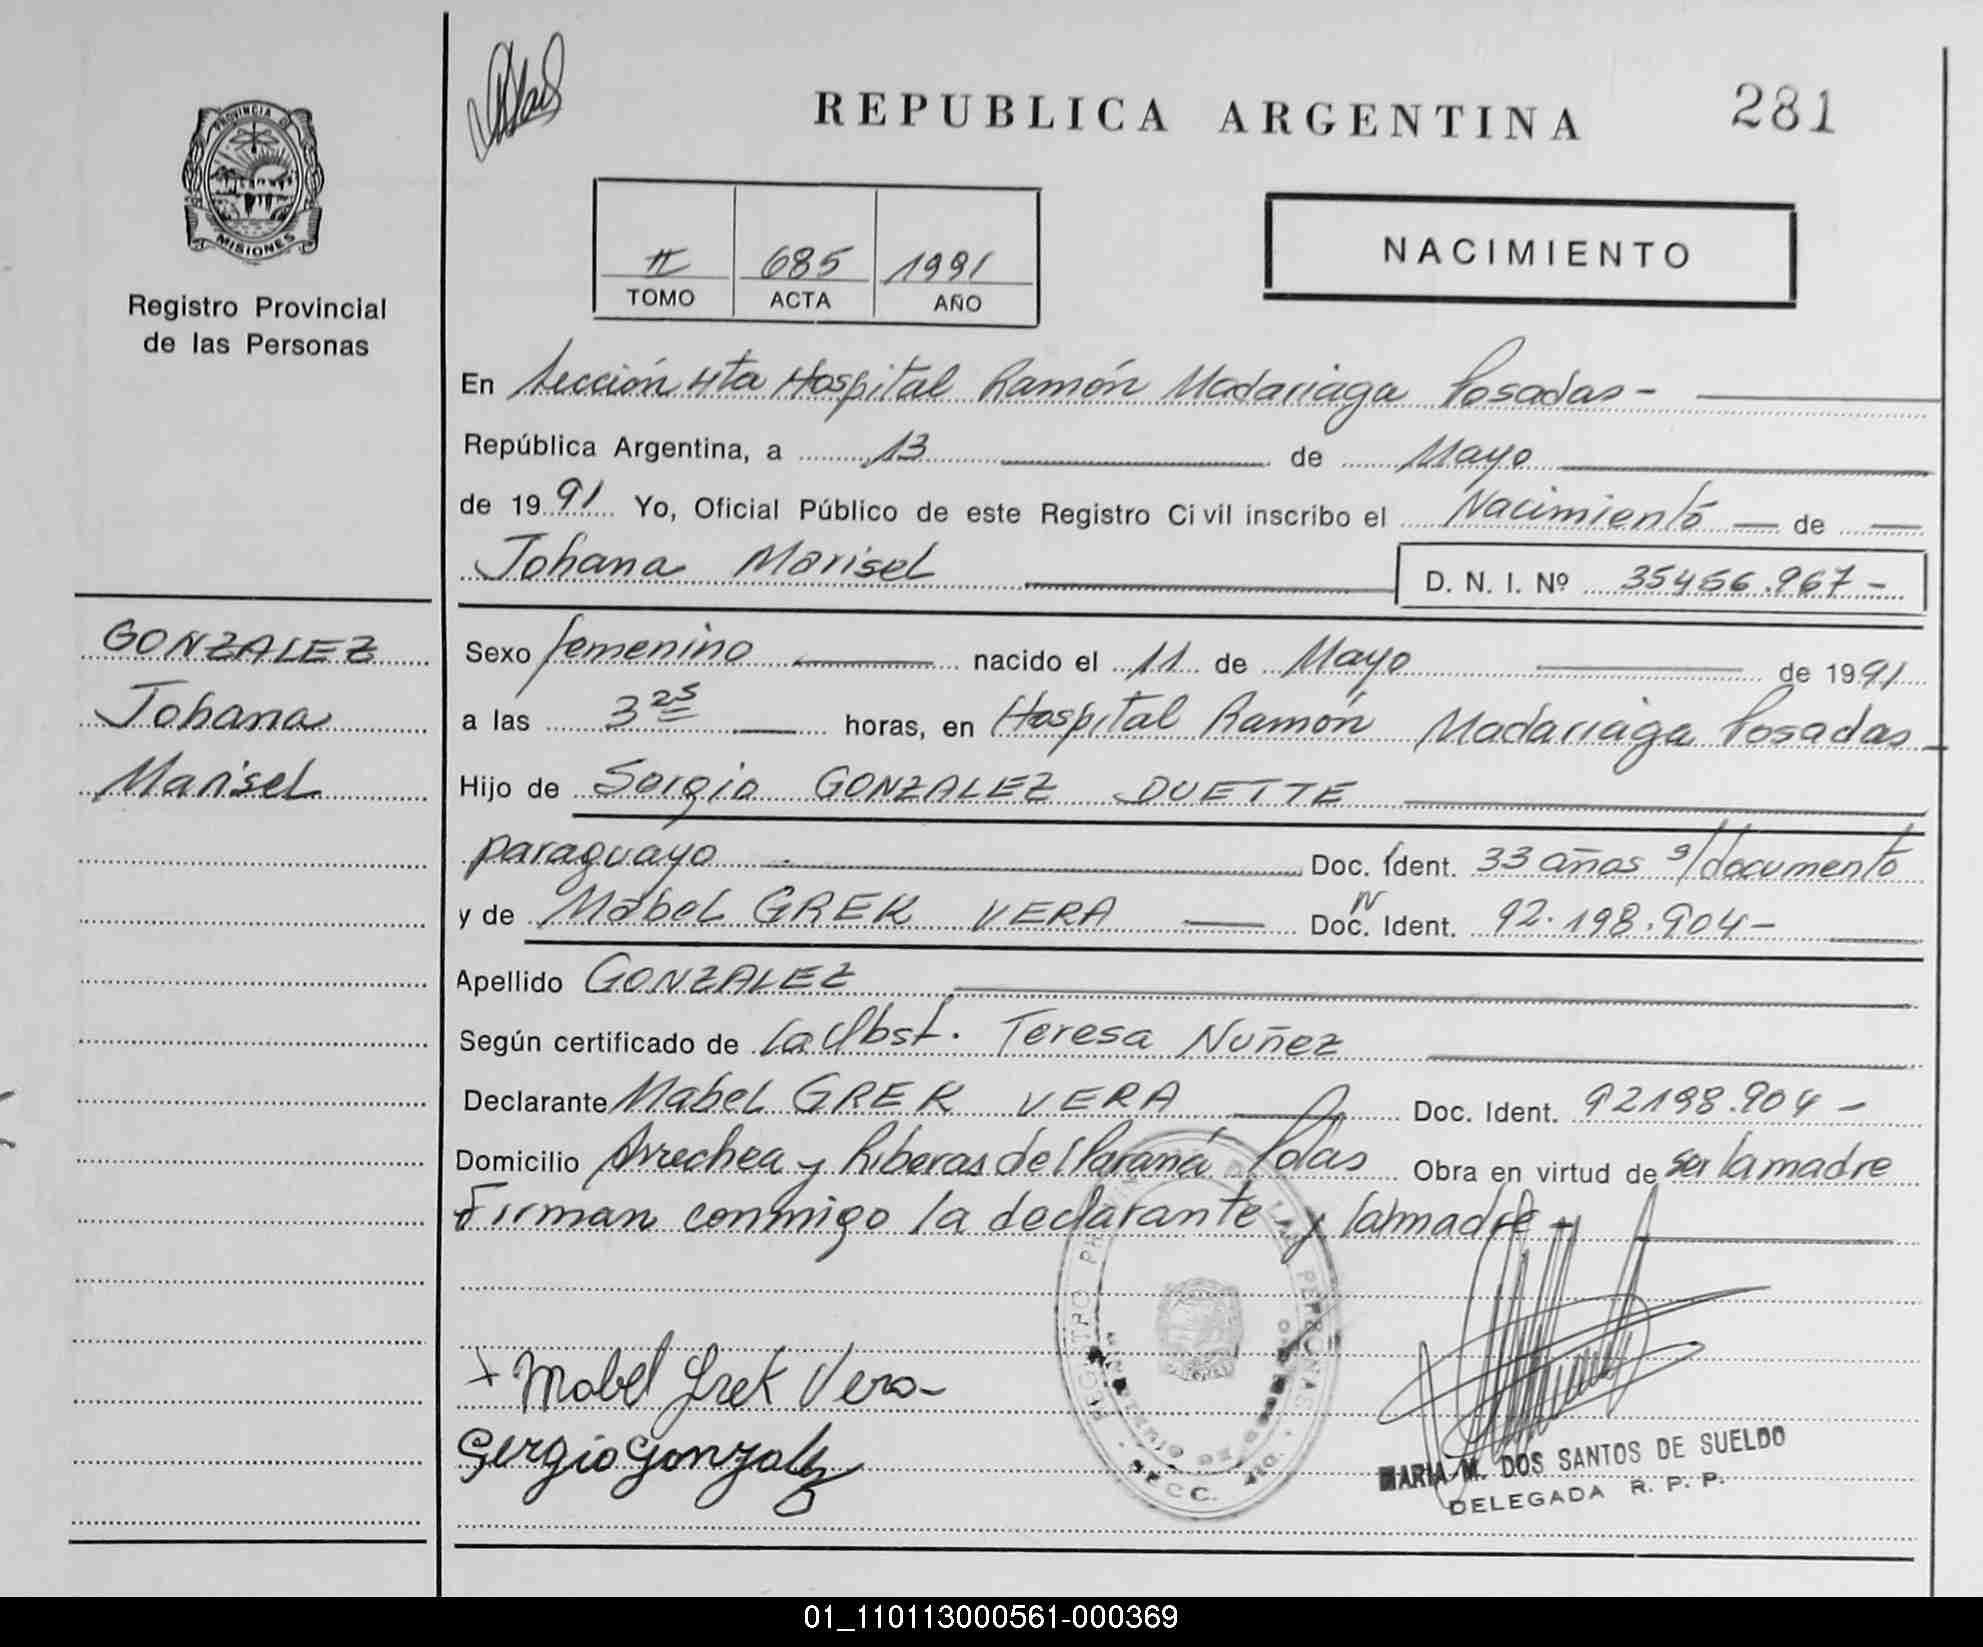 PROVINCIA DE
MISIONES
Registro Provincial
de las Personas
GONZALEZ
Johana
Marisel
REPUBLICA ARGENTINA
281
II 685 1991
TOMO ACTA AÑO
NACIMIENTO
En Sección 4ta Hospital Ramón Madariaga Posadas -
República Argentina, a 13 de Mayo
de 1991 Yo, Oficial Público de este Registro Civil inscribo el Nacimiento de
Johana Marisel D. N. I. Nº 35456.967-
Sexo femenino nacido el 11 de Mayo de 1991
a las 3 25 horas, en Hospital Ramón Madariaga Posadas -
Hijo de Sergio GONZALEZ DUETTE
paraguayo Doc. Ident. 33 años s/documento
y de Mabel GREK VERA Doc. Ident. 92.198.904-
Apellido GONZALEZ
Según certificado de la Obst. Teresa Nuñez
Declarante Mabel GREK VERA Doc. Ident. 92198.904-
Domicilio Arrechea y Riberas del Paraná Pdas Obra en virtud de ser la madre
Firman conmigo la declarante y la madre -
x Mabel Grek Vera-
Sergio Gonzalez
MARIA M. DOS SANTOS DE SUELDO
DELEGADA R. P. P.
01_110113000561-000369